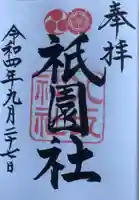 奉拝
祇園社
令和四年九月二十七日